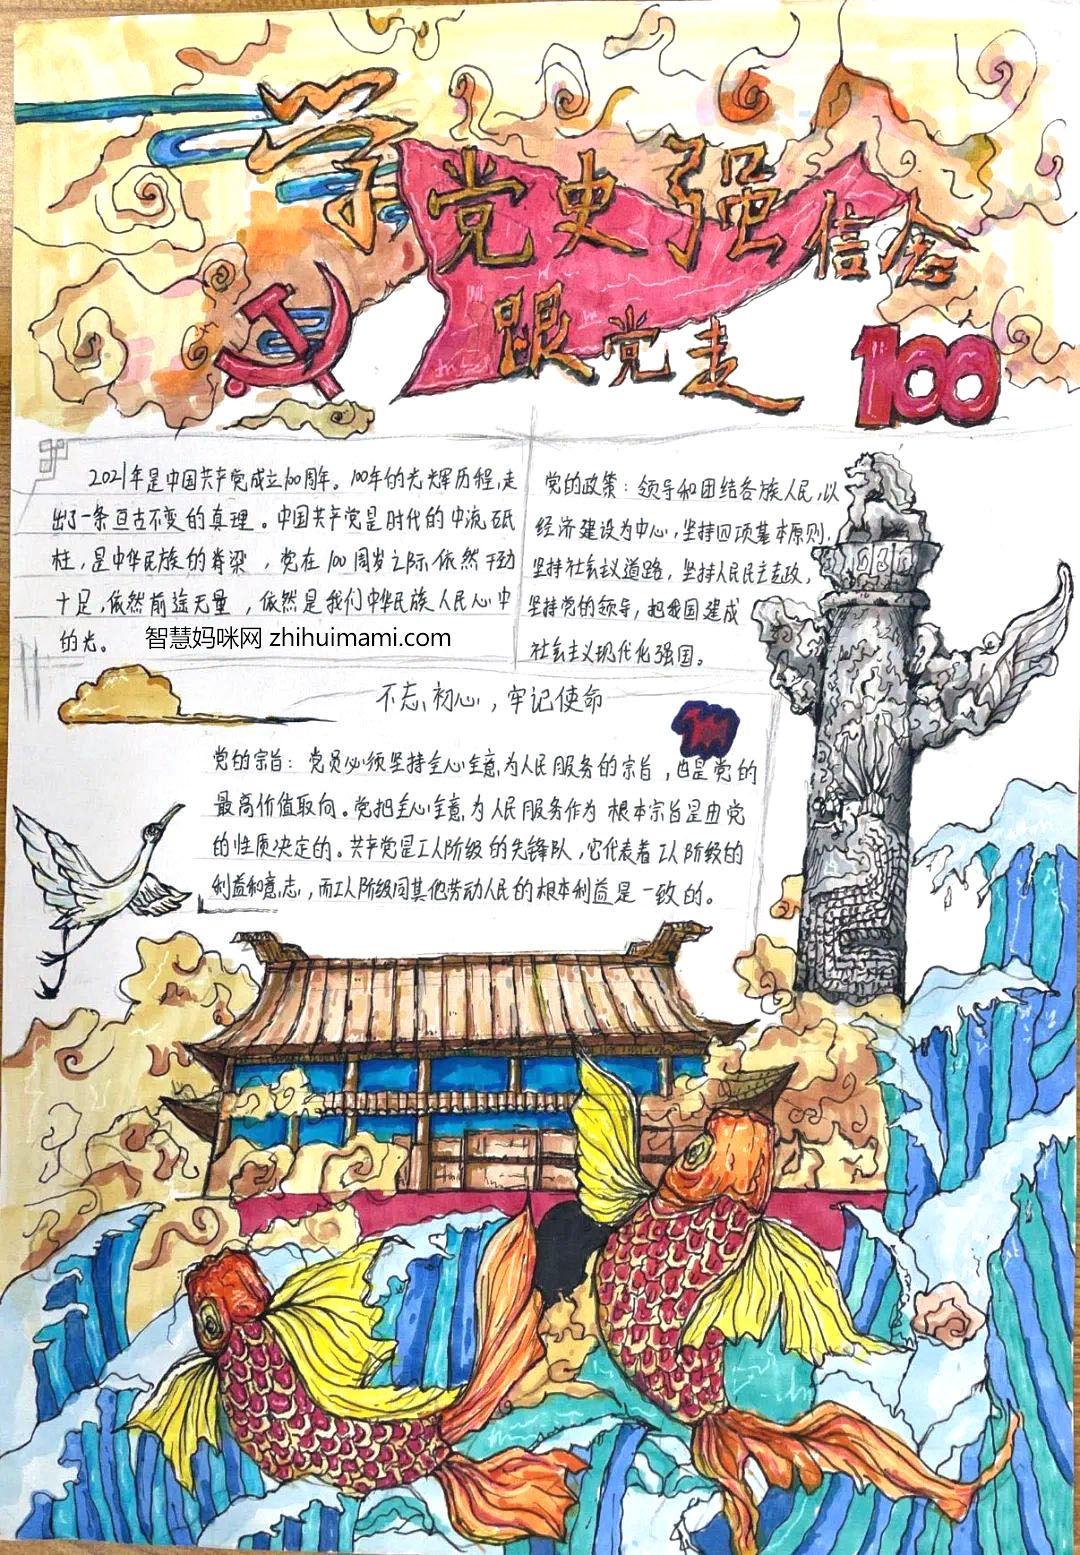 学党史强信念
跟党走
100
2021年是中国共产党成立100周年。100年的光辉历程,走
出了一条亘古不变的真理。中国共产党是时代的中流砥
柱,是中华民族的脊梁,党在100周岁之际依然干劲
十足,依然前途无量,依然是我们中华民族人民心中
的光。
智慧妈咪网 zhihuimami.com
党的政策:领导和团结各族人民,以
经济建设为中心,坚持四项基本原则,
坚持社会主义道路,坚持人民民主专政,
坚持党的领导,把我国建成
社会主义现代化强国。
不忘初心,牢记使命
100
党的宗旨:党员必须坚持全心全意为人民服务的宗旨,也是党的
最高价值取向。党把全心全意为人民服务作为根本宗旨是由党
的性质决定的。共产党是工人阶级的先锋队,它代表着工人阶级的
利益和意志,而工人阶级同其他劳动人民的根本利益是一致的。